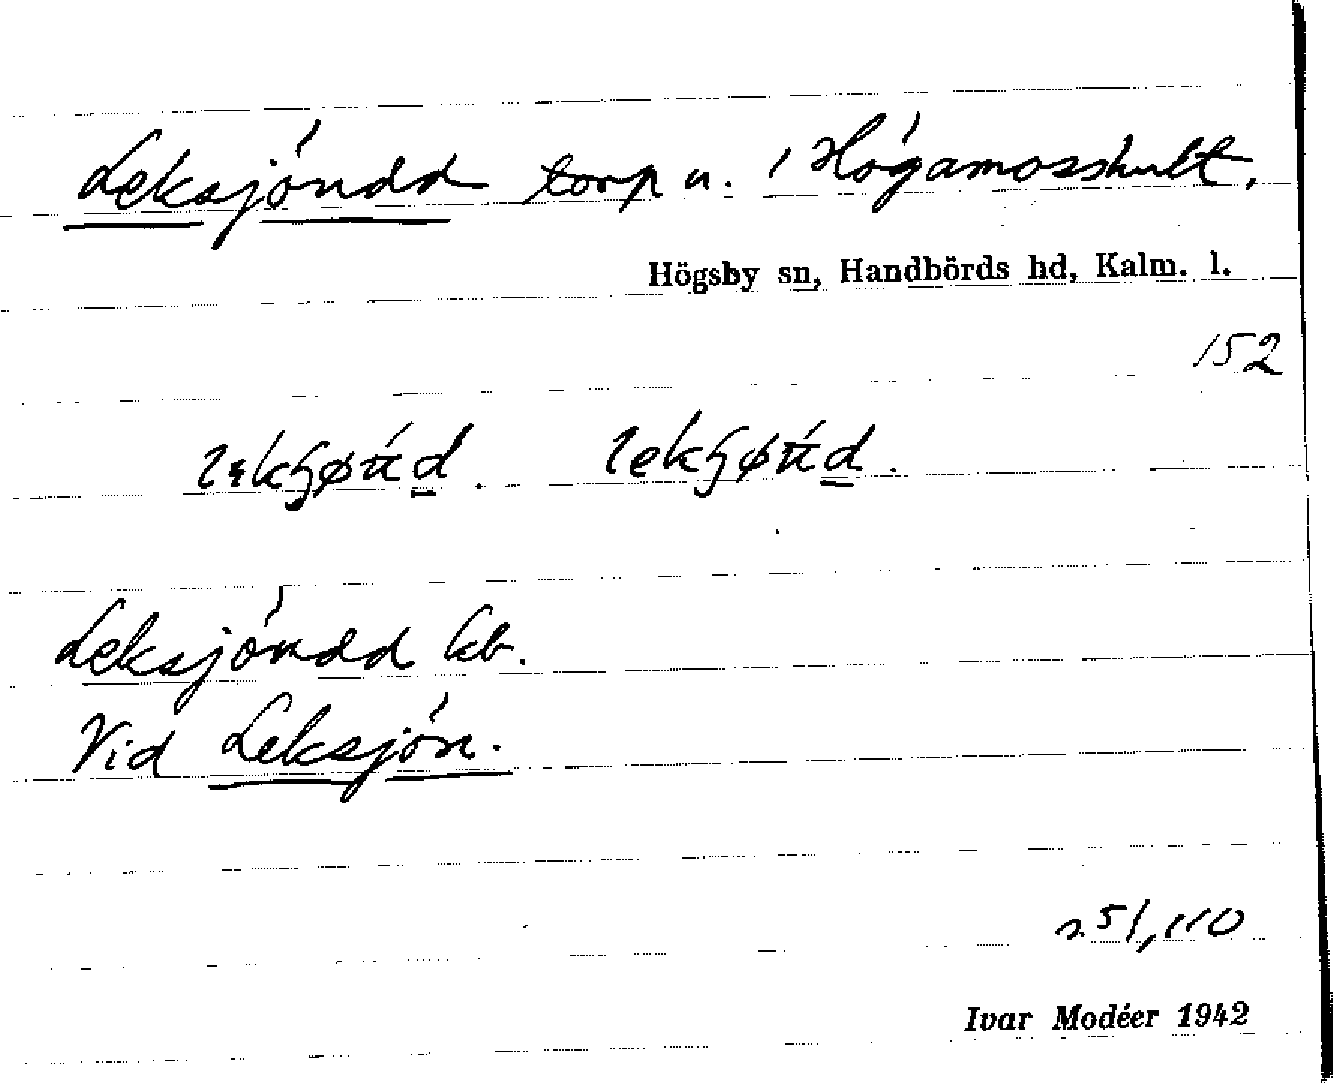 Leksjöndd torp u. Högamosshult.
Högsby sn, Handbörds hd, Kalm. l.
152
Leksjöndd kb.
Vid Leksjön.
s 51,110
Ivar Modéer 1942